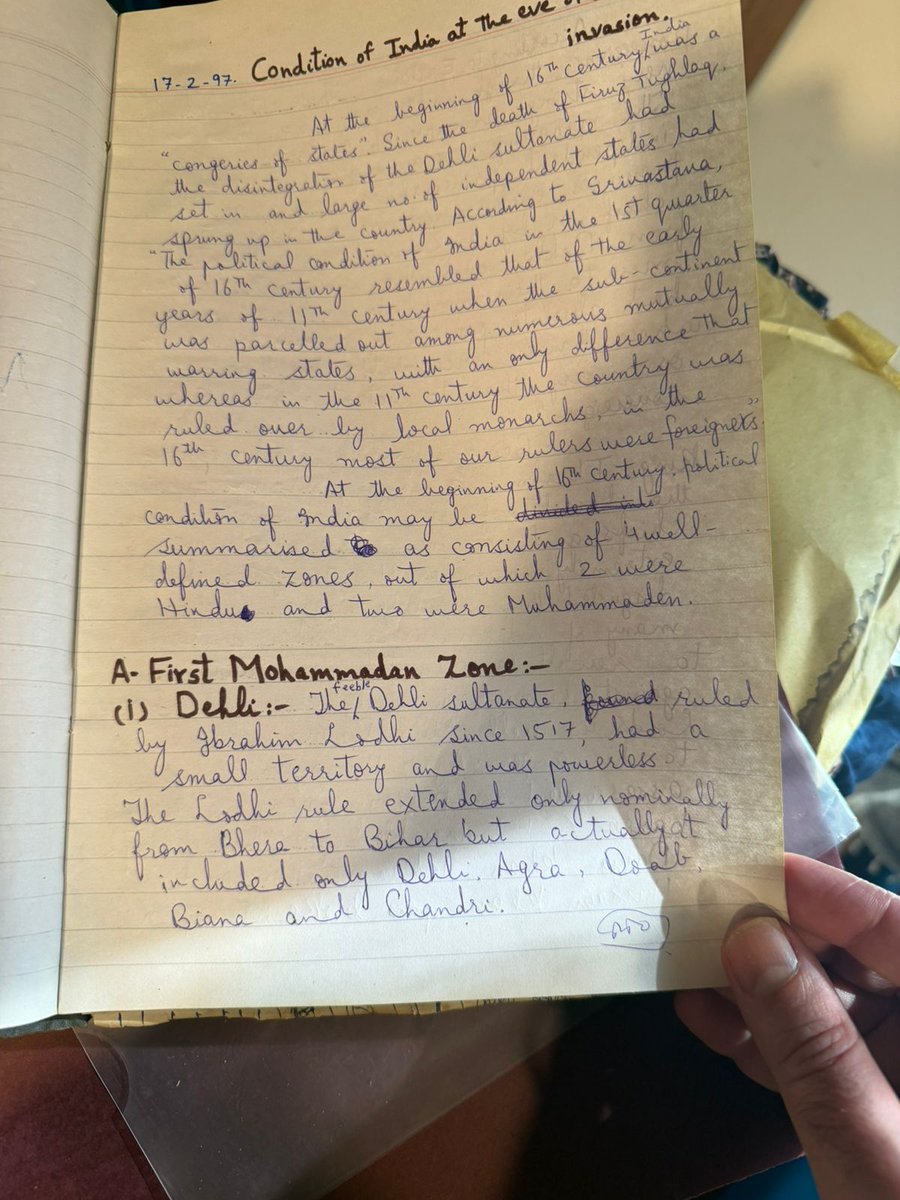 Condition of India at the eve of
invasion.
17-2-97.
At the beginning of 16th century India was a
"congeries of states". Since the death of Firuz Tughlaq,
the disintegration of the Dehli sultanate had
set in and large no. of independent states had
sprung up in the country. According to Srivastava,
"The political condition of India in the 1st quarter
of 16th century resembled that of the early
years of 11th century when the sub-continent
was parcelled out among numerous mutually
warring states, with an only difference that
whereas in the 11th century the country was
ruled over by local monarchs, in the
16th century most of our rulers were foreigners"
At the beginning of 16th century, political
condition of India may be divided into
summarised as consisting of 4 well-
defined zones, out of which 2 were
Hindu and two were Muhammaden.
A- First Mohammadan Zone:-
(i) Dehli:- The feeble Dehli sultanate, ruled
by Ibrahim Lodhi since 1517, had a
small territory and was powerless.
The Lodhi rule extended only nominally
from Bhera to Bihar but actually it
included only Dehli, Agra, Doab,
Biana and Chandri.